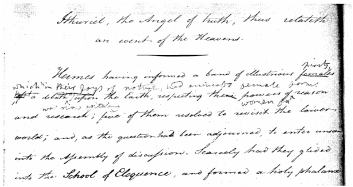 Ithuriel, the Angel of truth, thus relateth
an event of the Heavens.
Hermes having informed a band of illustrious females
which in their days of nature, had animated female form
a debate, upon the earth, respecting their powers of reason
women
and research; five of them resolved to revisit the lower
world; and, as the question had been adjourned, to enter unseen
into the Assembly of discussion. Scarcely had they glided
into the School of Eloquence, and formed a holy phalanx